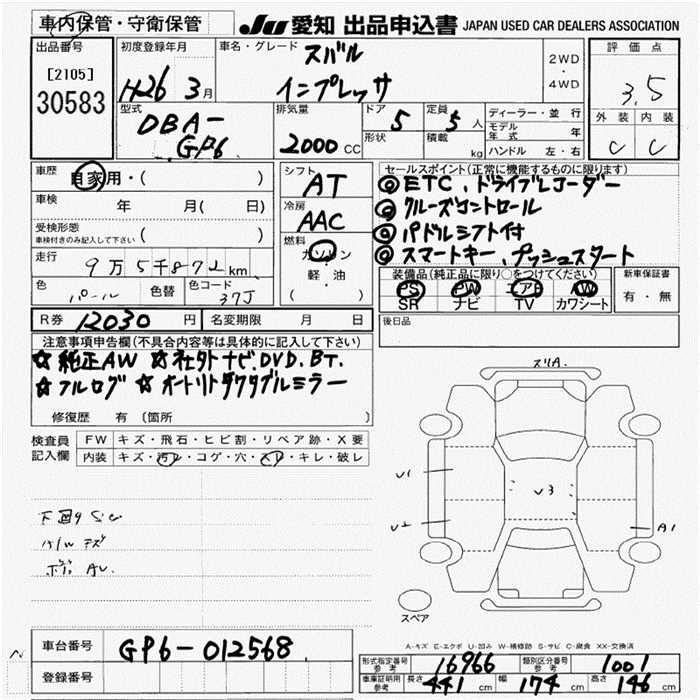 車内保管・守衛保管
JU 愛知 出品申込書 JAPAN USED CAR DEALERS ASSOCIATION
出品番号
[2105]
30583
初度登録年月
H26 3月
車名・グレード
スバル
インプレッサ
2WD
・
4WD
評価点
3.5
外装 内装
C C
型式
DBA-
GP6
排気量
2000 CC
ドア
5
形状
定員
5人
積載
kg
ディーラー・並行
モデル年式 年
ハンドル 左・右
車歴
自家用・( )
車検
年 月( 日)
受検形態
車検付きのみ記入して下さい ( )
走行
9万5千872km
色
パール
色替
色コード
37J
シフト
AT
冷房
AAC
燃料
ガソリン
・
軽・油
( )
セールスポイント(正常に機能するものに限ります)
◎ETC、ドライブレコーダー
◎クルーズコントロール
◎パドルシフト付
◎スマートキー、プッシュスタート
装備品(純正品に限り○をつけてください)
PS PW エアB AW
SR ナビ TV カワシート
新車保証書
有・無
R券 12030円
名変期限 月 日
後日品
注意事項申告欄(不具合内容等は具体的に記入して下さい)
☆純正AW ☆社外ナビ.DVD.BT.
☆フルログ ☆オートリトラクタブルミラー
修復歴 有〔箇所 〕
検査員
記入欄
FW キズ・飛石・ヒビ割・リペア跡・X要
内装 キズ・汚れ・コゲ・穴・スレ・キレ・破レ
下回り
スリA.
U1
U2
U3
A1
スペア
A-キズ E-エクボ U-凹み W-補修跡 S-サビ C-腐食 XX-交換済
車台番号 GP6-012568
登録番号
型式指定番号
参考
16966
類別区分番号
参考
1001
車庫証明用
参考
長さ 441cm 幅 174cm 高さ 146cm